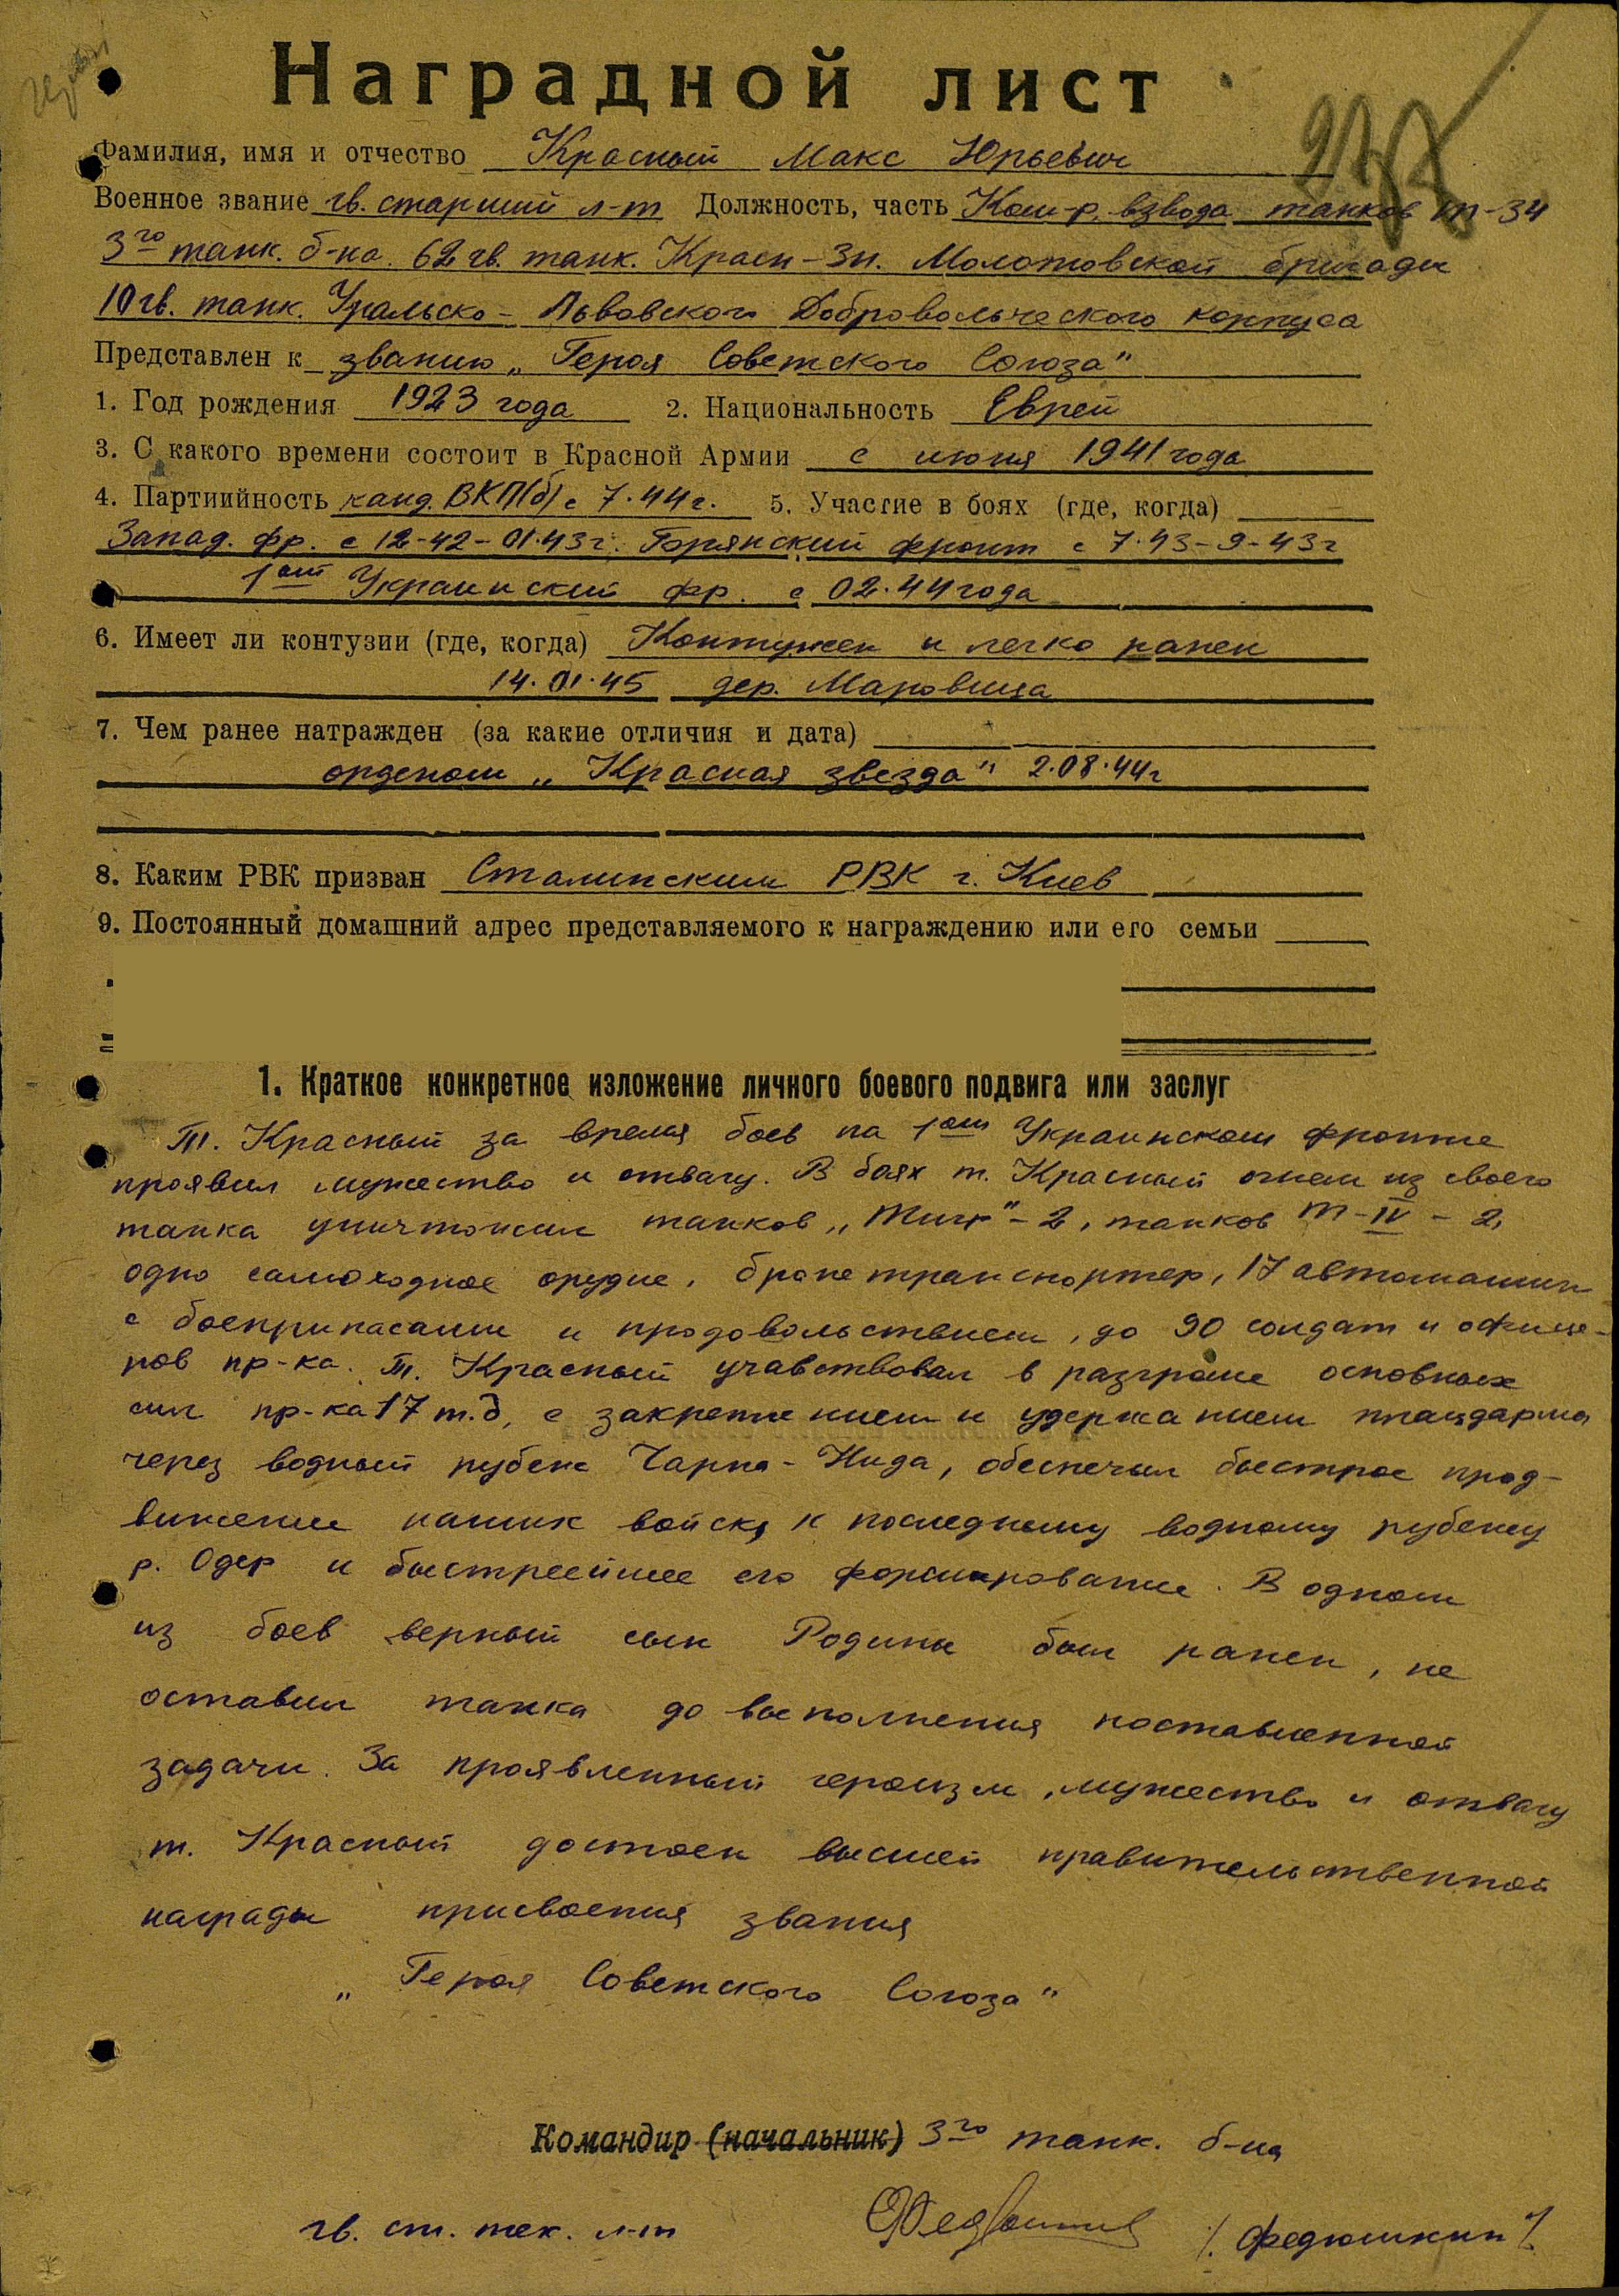 Наградной лист
Фамилия, имя и отчество Красный Макс Юрьевич
Военное звание гв. старший л-т Должность, часть Ком-р. взвода танков Т-34
3го танк. б-на. 62 гв. танк. Красн-Зн. Молотовской бригады
10 гв. танк. Уральско-Львовского Добровольческого корпуса
Представлен к званию „Героя Советского Союза"
1. Год рождения 1923 года 2. Национальность Еврей
3. С какого времени состоит в Красной Армии с июня 1941 года
4. Партиийность канд. ВКП(б) с 7.44 г. 5. Участие в боях (где, когда)
Запад. фр. с 12-42-01.43 г. Борянский фронт с 7.43-9-43 г
1ый Украинский фр. с 02.44 года
6. Имеет ли контузии (где, когда) Контужен и легко ранен
14.01.45 дер. Маровица
7. Чем ранее натражден (за какие отличия и дата)
орденом „Красная звезда" 2.08.44 г
8. Каким РВК призван Сталинским РВК г. Киев
9. Постоянный домашний адрес представляемого к награждению или его семьи
1. Краткое конкретное изложение личного боевого подвига или заслуг
Т. Красный за время боев на 1ом Украинском фронте
проявил мужество и отвагу. В боях т. Красный огнем из своего
танка уничтожил танков „Тигр"-2, танков Т-IV-2,
одно самоходное орудие, бронетранспортер, 17 автомашин
с боеприпасами и продовольствием, до 90 солдат и офице-
ров пр-ка. Т. Красный учавствовал в разгроме основных
сил пр-ка 17 т.д, с закреплением и удержанием плацдарма
через водный рубеж Чарна-Нида, обеспечил быстрое прод-
вижение наших войск, к последнему водному рубежу
р. Одер и быстрейшее его форсирование. В одном
из боев верный сын Родины был ранен, не
оставил танка до выполнения поставленной
задачи. За проявленный героизм, мужество и отвагу
т. Красный достоен высшей правительственной
награды присвоения звания
„Героя Советского Союза"
Командир (начальник) 3го танк. б-на
гв. ст. тех. л-т /. Федюшкин /.